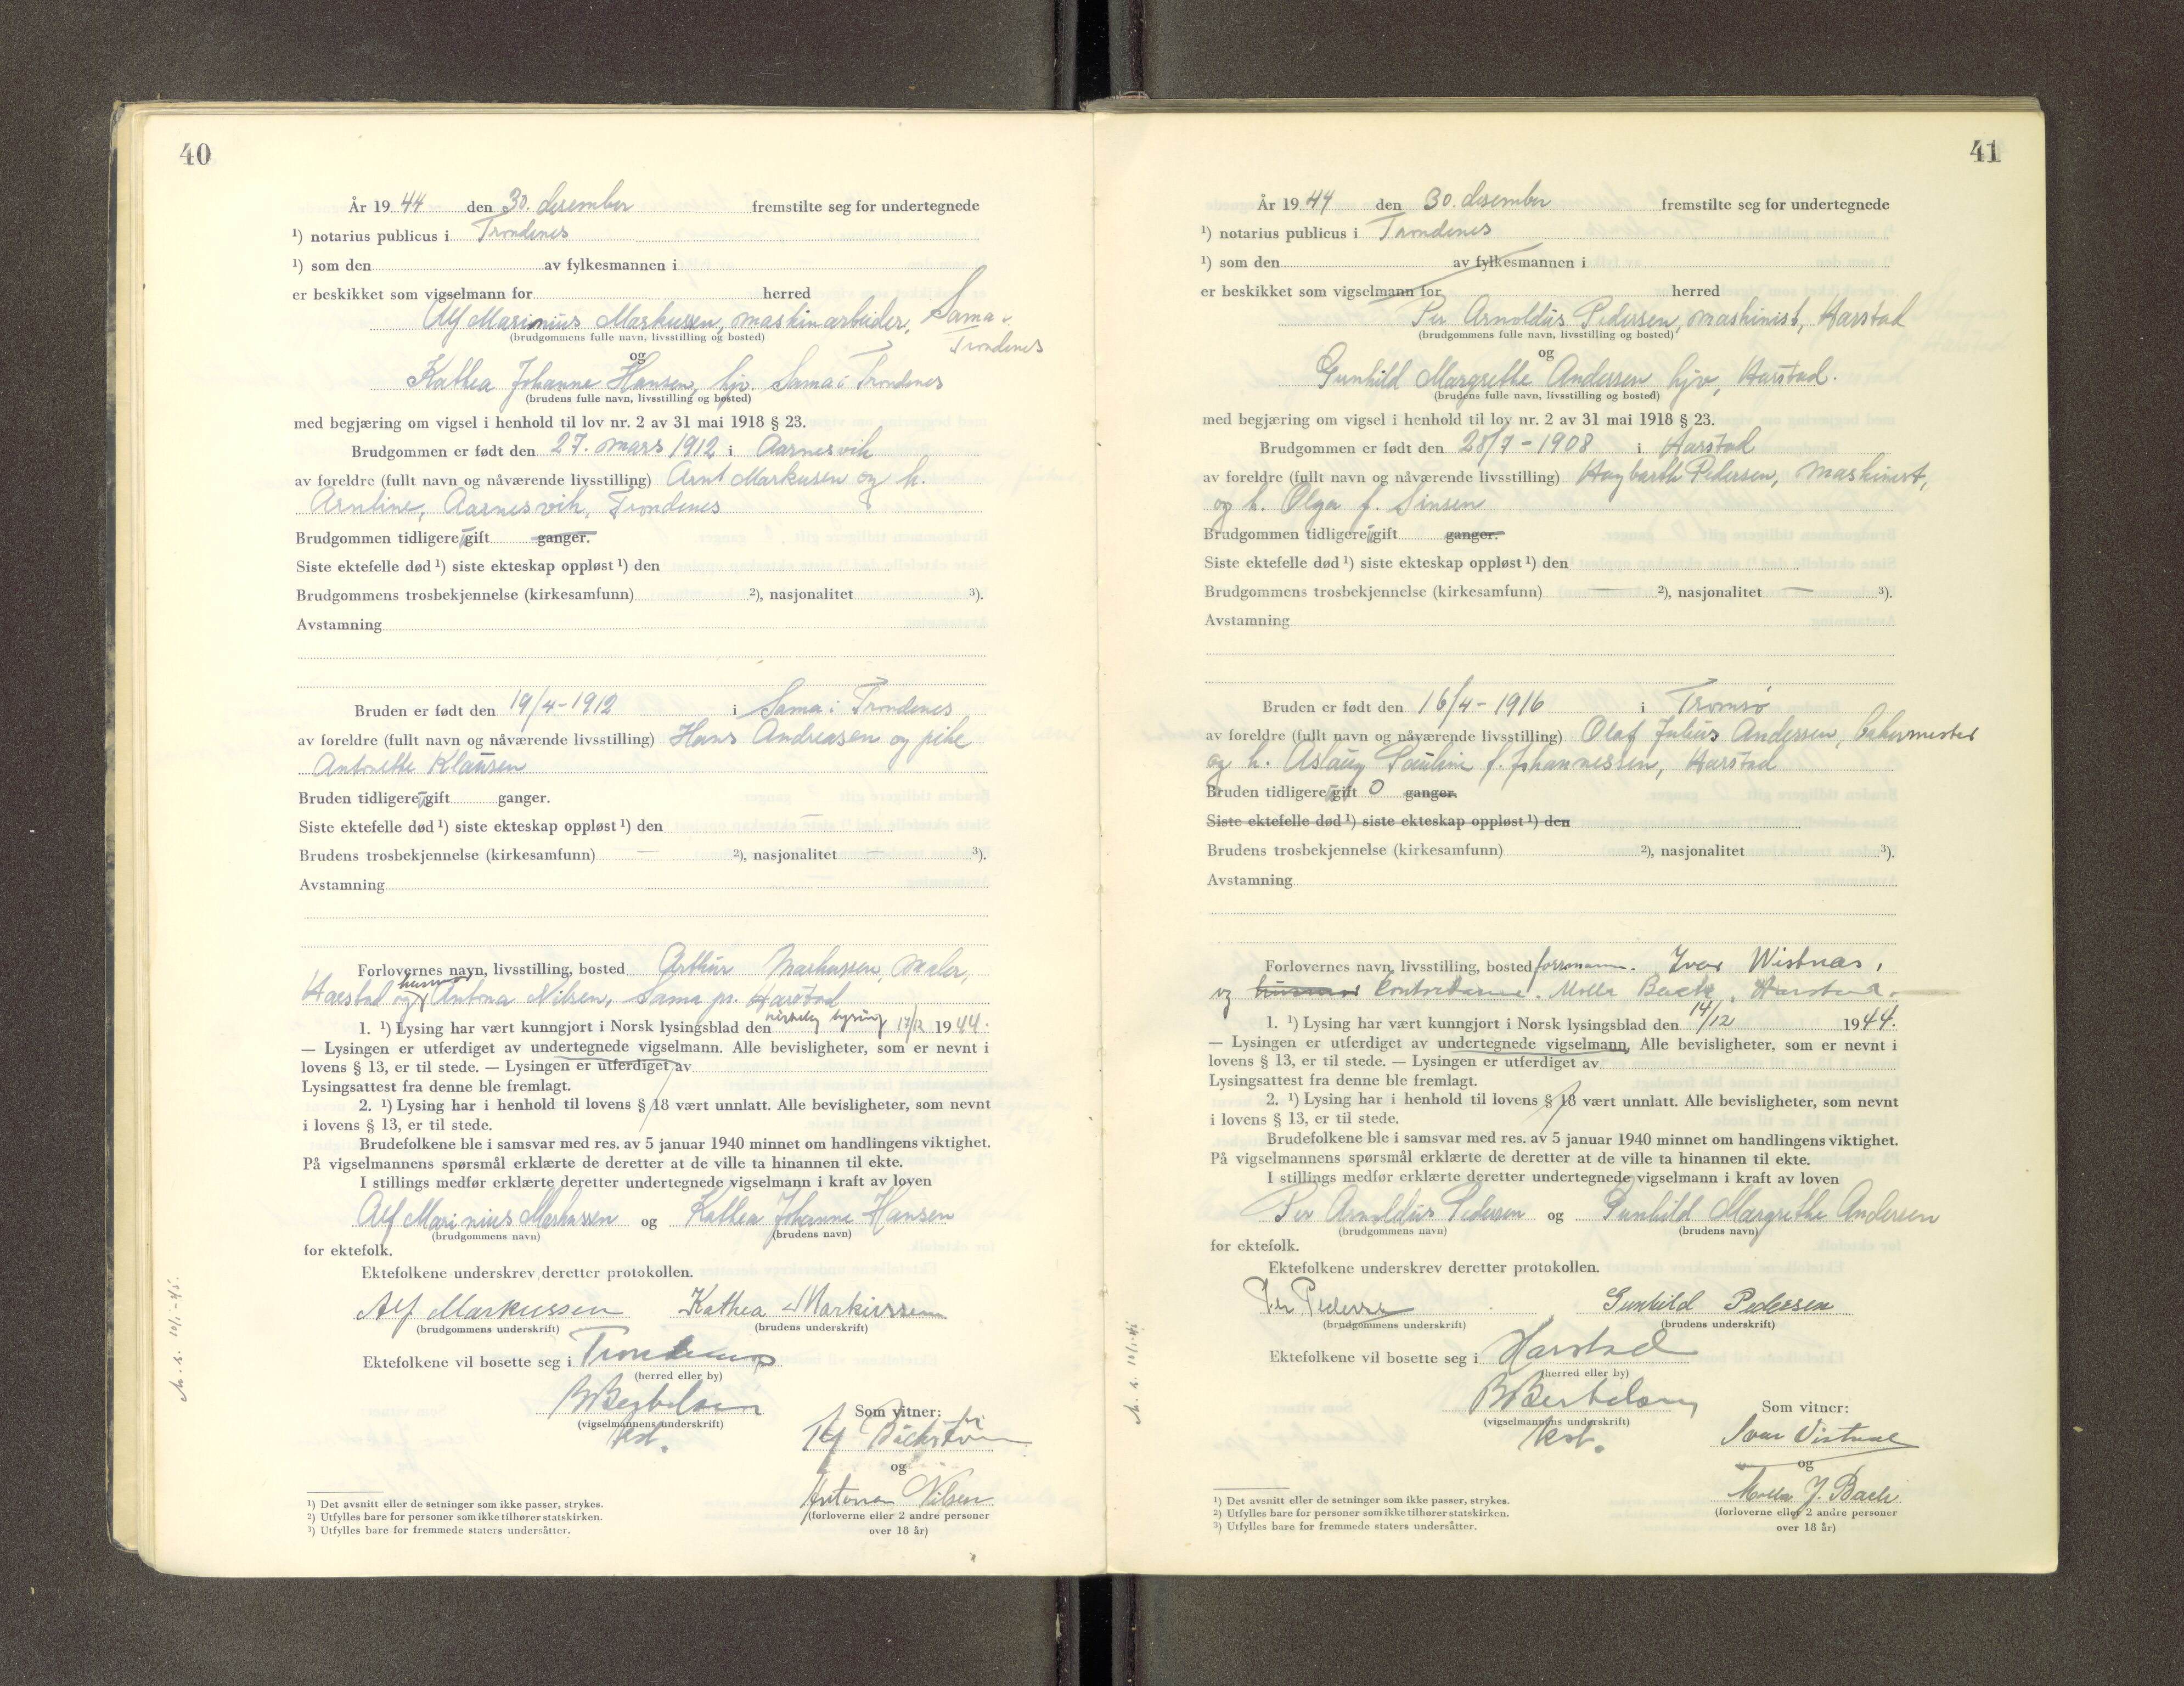 40
År 19 44 den 30. desember fremstilte seg for undertegnede
¹) notarius publicus i Trondenes
¹) som den av fylkesmannen i
er beskikket som vigselmann for herred
Alf Marinius Markussen, maskinarbeider, Sama i Trondenes
(brudgommens fulle navn, livsstilling og bosted)
og
Kathea Johanne Hansen, hjv. Sama i Trondenes
(brudens fulle navn, livsstilling og bosted)
med begjæring om vigsel i henhold til lov nr. 2 av 31 mai 1918 § 23.
Brudgommen er født den 27. mars 1912 i Aarnesvik
av foreldre (fullt navn og nåværende livsstilling) Arnt Markusen og h.
Arntine, Aarnesvik, Trondenes
Brudgommen tidligere gift ganger.
Siste ektefelle død ¹) siste ekteskap oppløst ¹) den
Brudgommens trosbekjennelse (kirkesamfunn) ²), nasjonalitet ³).
Avstamning
Bruden er født den 19/4-1912 i Sama i Trondenes
av foreldre (fullt navn og nåværende livsstilling) Hans Andreasen og pike
Antonette Klausen
Bruden tidligere gift ganger.
Siste ektefelle død ¹) siste ekteskap oppløst ¹) den —
Brudens trosbekjennelse (kirkesamfunn) — ²), nasjonalitet — ³).
Avstamning
Forlovernes navn, livsstilling, bosted Arthur Markussen, maler,
Harstad og husmor Antona Nilsen, Sama pr. Harstad
1. ¹) Lysing har vært kunngjort i Norsk lysingsblad den kirkelig lysing 17/12 1944.
— Lysingen er utferdiget av undertegnede vigselmann. Alle bevisligheter, som er nevnt i
lovens § 13, er til stede. — Lysingen er utferdiget av
Lysingsattest fra denne ble fremlagt.
2. ¹) Lysing har i henhold til lovens § 18 vært unnlatt. Alle bevisligheter, som nevnt
i lovens § 13, er til stede.
Brudefolkene ble i samsvar med res. av 5 januar 1940 minnet om handlingens viktighet.
På vigselmannens spørsmål erklærte de deretter at de ville ta hinannen til ekte.
I stillings medfør erklærte deretter undertegnede vigselmann i kraft av loven
Alf Marinius Markussen og Kathea Johanne Hansen
(brudgommens navn) (brudens navn)
for ektefolk.
Ektefolkene underskrev deretter protokollen.
Alf Markussen Kathea Markussen
(brudgommens underskrift) (brudens underskrift)
Ektefolkene vil bosette seg i Trondenes
(herred eller by)
B Berthelsen
(vigselmannens underskrift)
Kst.
Som vitner:
og
Antona Nilsen
(forloverne eller 2 andre personer
over 18 år)
¹) Det avsnitt eller de setninger som ikke passer, strykes.
²) Utfylles bare for personer som ikke tilhører statskirken.
³) Utfylles bare for fremmede staters undersåtter.
41
År 19 44 den 30. desember fremstilte seg for undertegnede
¹) notarius publicus i Trondenes
¹) som den av fylkesmannen i
er beskikket som vigselmann for herred
Per Arnoldus Pedersen, maskinist, Harstad
(brudgommens fulle navn, livsstilling og bosted)
og
Gunhild Margrethe Andersen hjv, Harstad.
(brudens fulle navn, livsstilling og bosted)
med begjæring om vigsel i henhold til lov nr. 2 av 31 mai 1918 § 23.
Brudgommen er født den 28/7-1908 i Harstad
av foreldre (fullt navn og nåværende livsstilling) Haybarth Pedersen, maskinist,
og h. Olga f. Sinsen
Brudgommen tidligere gift ganger.
Siste ektefelle død ¹) siste ekteskap oppløst ¹) den
Brudgommens trosbekjennelse (kirkesamfunn) — ²), nasjonalitet — ³).
Avstamning
Bruden er født den 16/4-1916 i Tromsø
av foreldre (fullt navn og nåværende livsstilling) Olaf Julius Andersen, bakermester
og h. Aslaug Pauline f. Johannessen, Harstad
Bruden tidligere gift 0 ganger.
Siste ektefelle død ¹) siste ekteskap oppløst ¹) den
Brudens trosbekjennelse (kirkesamfunn) ²), nasjonalitet ³).
Avstamning
Forlovernes navn, livsstilling, bosted formann. Ivar Wistnæs,
og husmor Kontordame. Molla Back, Harstad.
1. ¹) Lysing har vært kunngjort i Norsk lysingsblad den 14/12 1944.
— Lysingen er utferdiget av undertegnede vigselmann. Alle bevisligheter, som er nevnt i
lovens § 13, er til stede. — Lysingen er utferdiget av
Lysingsattest fra denne ble fremlagt.
2. ¹) Lysing har i henhold til lovens § 18 vært unnlatt. Alle bevisligheter, som nevnt
i lovens § 13, er til stede.
Brudefolkene ble i samsvar med res. av 5 januar 1940 minnet om handlingens viktighet.
På vigselmannens spørsmål erklærte de deretter at de ville ta hinannen til ekte.
I stillings medfør erklærte deretter undertegnede vigselmann i kraft av loven
Per Arnoldus Pedersen og Gunhild Margrethe Andersen
(brudgommens navn) (brudens navn)
for ektefolk.
Ektefolkene underskrev deretter protokollen.
Per Pedersen Gunhild Pedersen
(brudgommens underskrift) (brudens underskrift)
Ektefolkene vil bosette seg i Harstad
(herred eller by)
B Berthelsen
(vigselmannens underskrift)
Kst.
Som vitner:
Ivar Vistnæs
og
Molla J. Back
(forloverne eller 2 andre personer
over 18 år)
¹) Det avsnitt eller de setninger som ikke passer, strykes.
²) Utfylles bare for personer som ikke tilhører statskirken.
³) Utfylles bare for fremmede staters undersåtter.